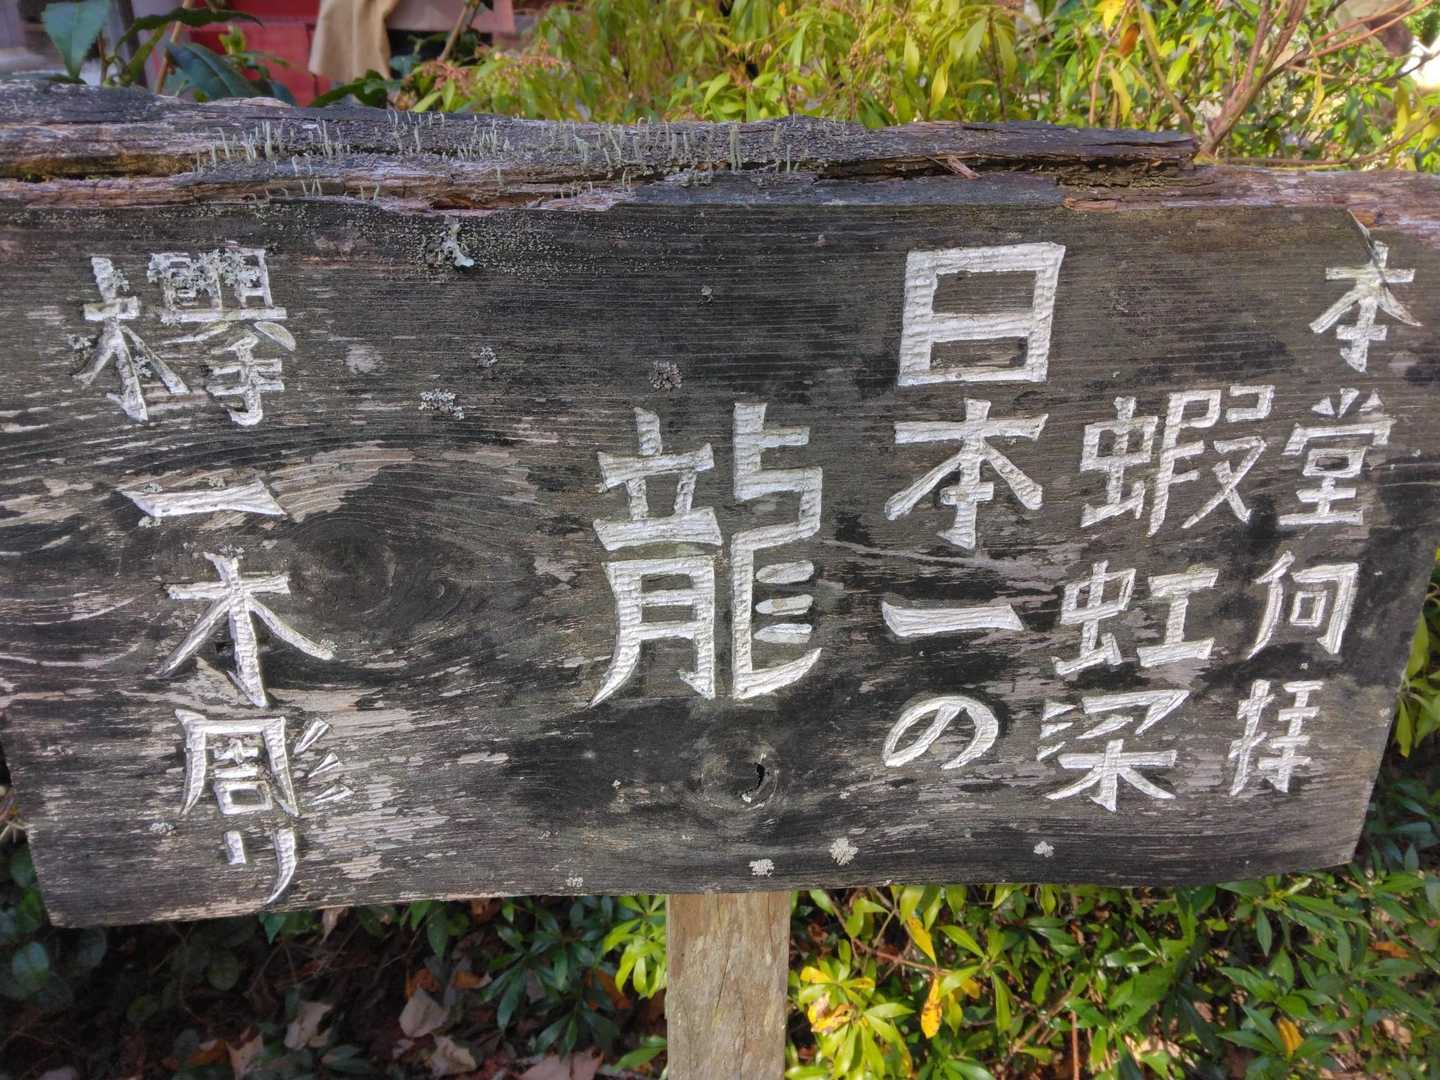 本堂向拝
蝦虹梁
日本一の
龍
欅一木彫り